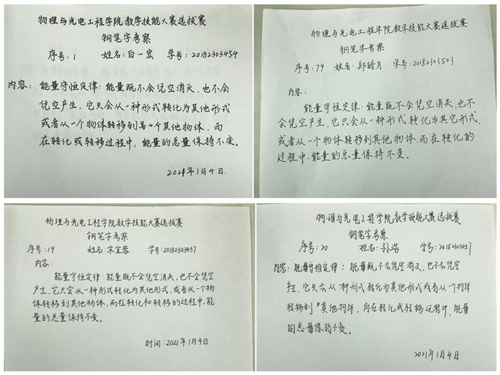 物理与光电工程学院教学技能大赛选拔赛
钢笔字考察
序号：1 姓名：白一宏 学号：20182303454
内容：能量守恒定律：能量既不会凭空消灭，也不会
凭空产生，它只会从一种形式转化为其他形式
或者从一个物体转移到另一个其他物体，而
在转化或转移过程中，能量的总量保持不变。
2021年1月4日.
物理与光电工程学院教学技能大赛选拔赛
钢笔字考察
序号：19 姓名：郑皓月 学号：20182303503
内容：能量守恒定律：能量既不会凭空消灭，也不会
凭空产生，它只会从一种形式转化为其它形式，
或者从一个物体转移到其他物体，而在转化的
过程中，能量的总量保持不变。
物理与光电工程学院教学技能大赛选拔赛
钢笔字考察
序号：19 姓名：宋宝蓉 学号：
内容：
能量守恒定律：能量既不会凭空消灭，也不会凭空
产生，它只会从一种形式转化为其他形式，或者从一个物
体转移到其他物体，而在转化和转移的过程中，能
量的总量保持不变。
时间：2021年1月4日
物理与光电工程学院教学技能大赛选拔赛
钢笔字考察
序号：20 姓名： 学号：
内容：能量守恒定律：能量既不会凭空消灭，也不会凭空
产生，它只会从一种形式转化为其他形式或者从一个物体
转移到其他物体，而在转化或转移过程中，能量
的总量保持不变。
2021年1月4日